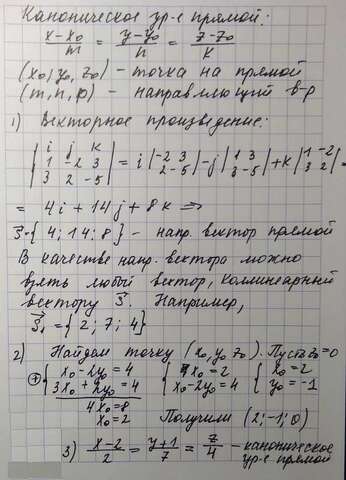 Каноническое ур-е прямой:
x-x₀/m = y-y₀/n = z-z₀/k
(x₀, y₀, z₀) - точка на прямой
(m, n, p) - направляющий в-р
1) Векторное произведение:
|i j k; 1 -2 3; 3 2 -5| = i |-2 3; 2 -5| - j |1 3; 3 -5| + k |1 -2; 3 2| =
= 4i + 14j + 8k ⇒
S⃗ {4; 14; 8} - напр. вектор прямой
В качестве напр. вектора можно
взять любой вектор, коллинеарный
вектору S⃗. Например,
S⃗₁ = {2; 7; 4}
2) Найдем точку (x₀, y₀ z₀). Пусть z₀=0
⊕ { x₀ - 2y₀ = 4 { 4x₀ = 8 { x₀ = 2
3x₀ + 2y₀ = 4 x₀ - 2y₀ = 4 y₀ = -1
4x₀ = 8
x₀ = 2 Получили (2; -1; 0)
3) x-2/2 = y+1/7 = z/4 - каноническое
ур-е прямой